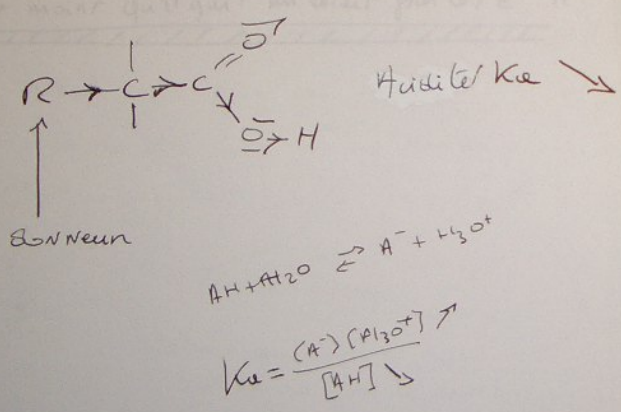 R → C → C = O
O → H
Acidité / Ka ↘
donneur
AH + H2O ⇌ A⁻ + H3O⁺
Ka = (A⁻) [H3O⁺] ↗
[AH] ↘